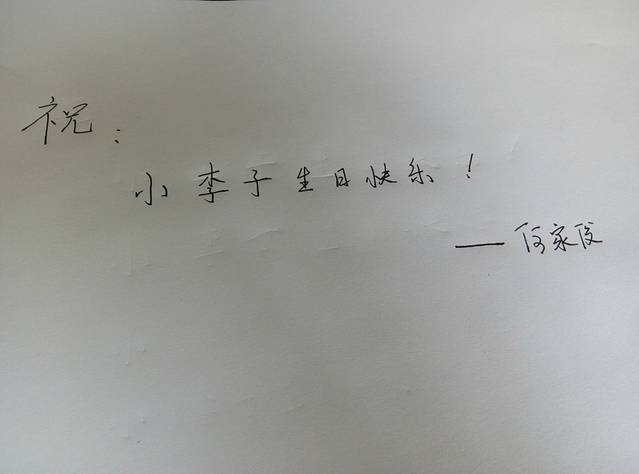 祝：
小李子生日快乐！
——何家俊